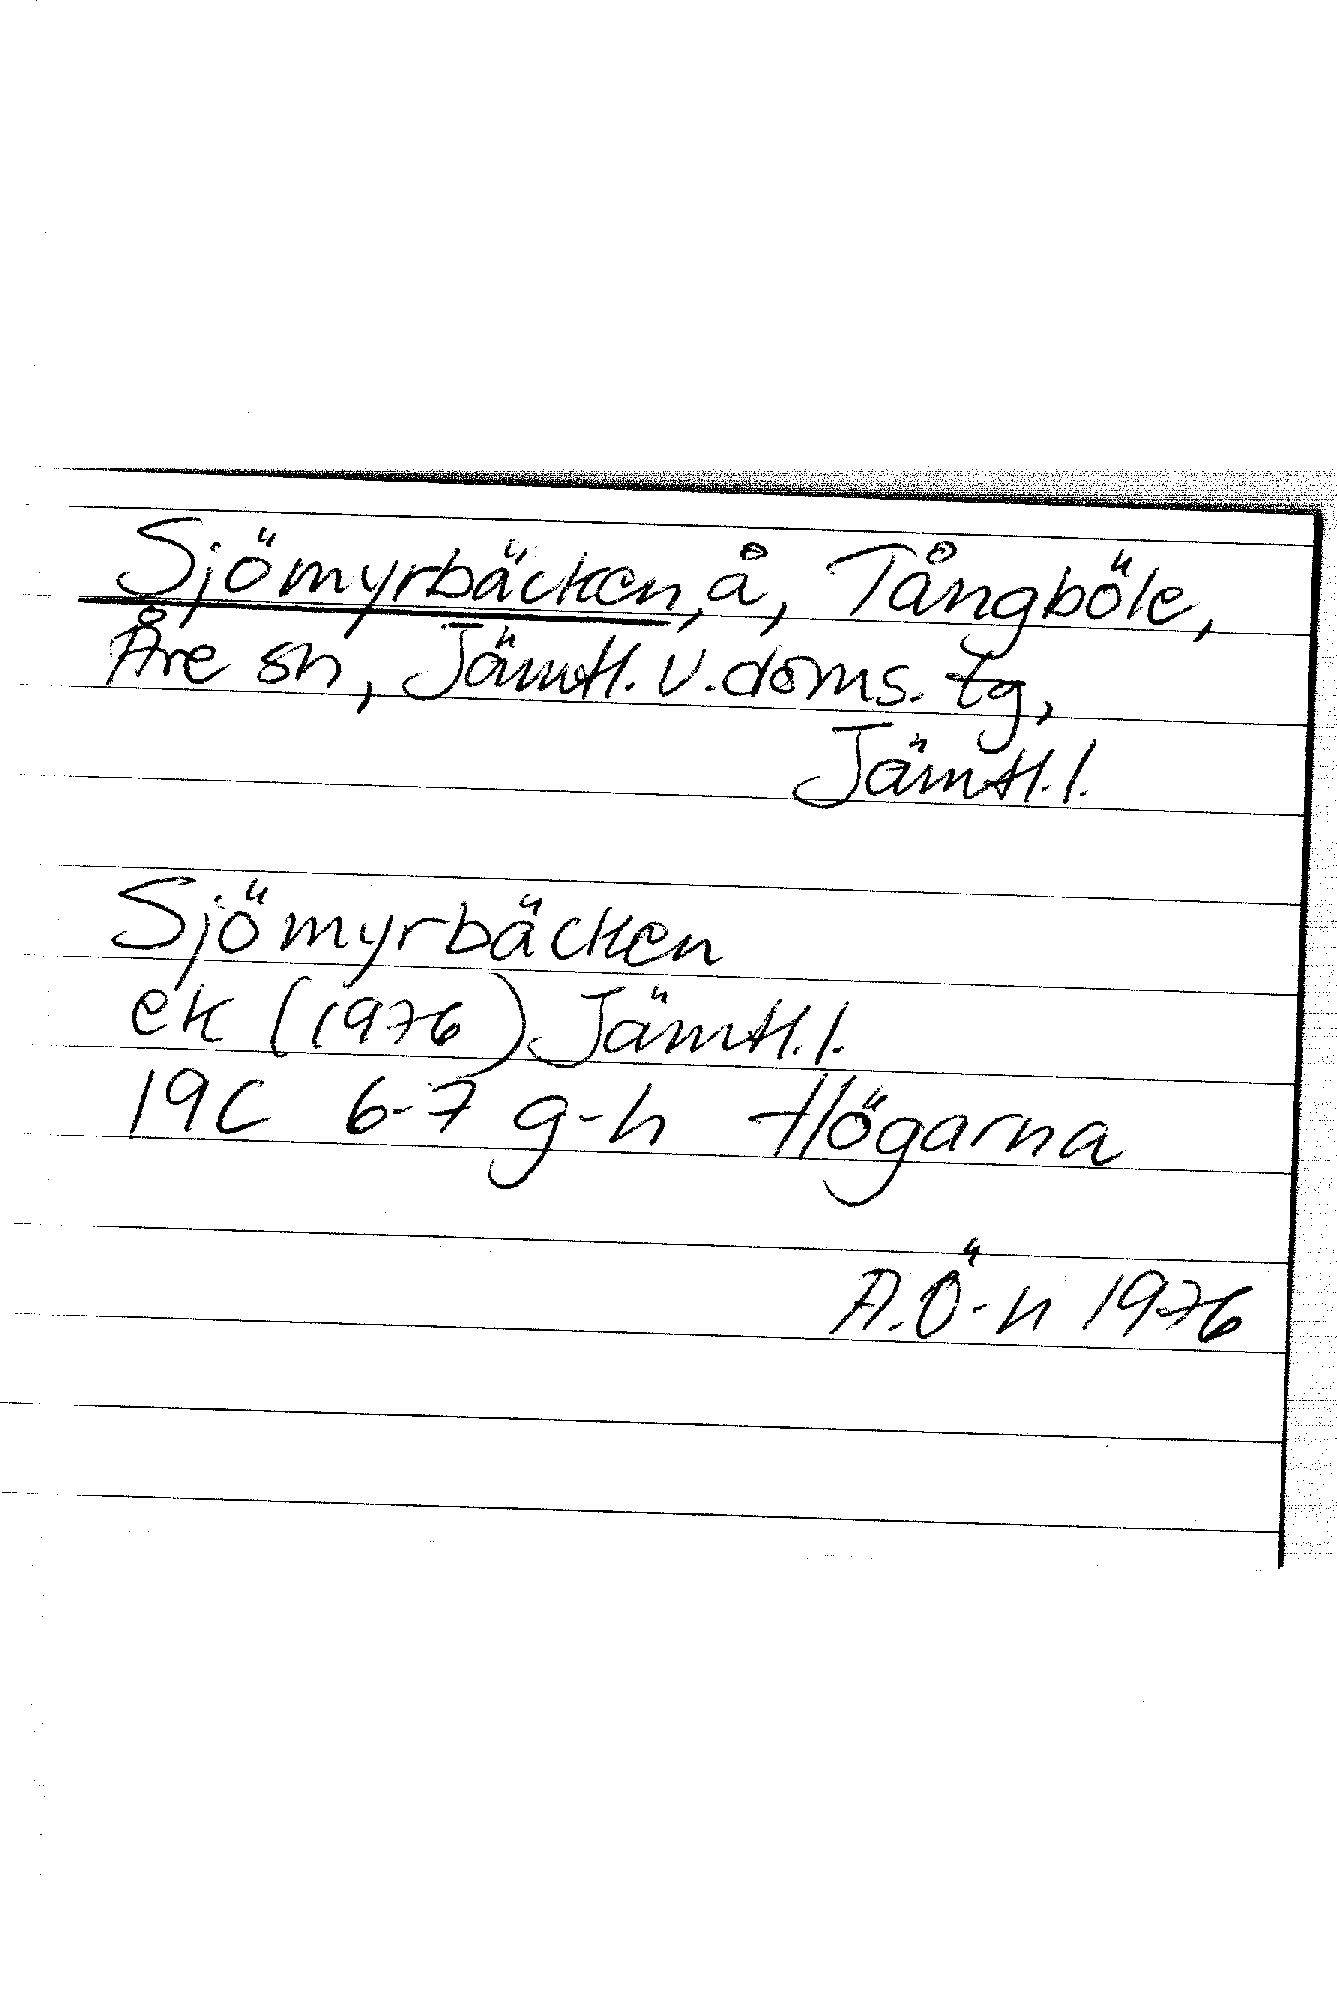 Sjömyrbäcken, å, Tångböle,
Åre sn, Jämtl. v. doms. tg,
Jämtl. l.
Sjömyrbäcken
ek (1976) Jämtl. l.
19C 6-7 g-h Högarna
A.Ö-n 1976